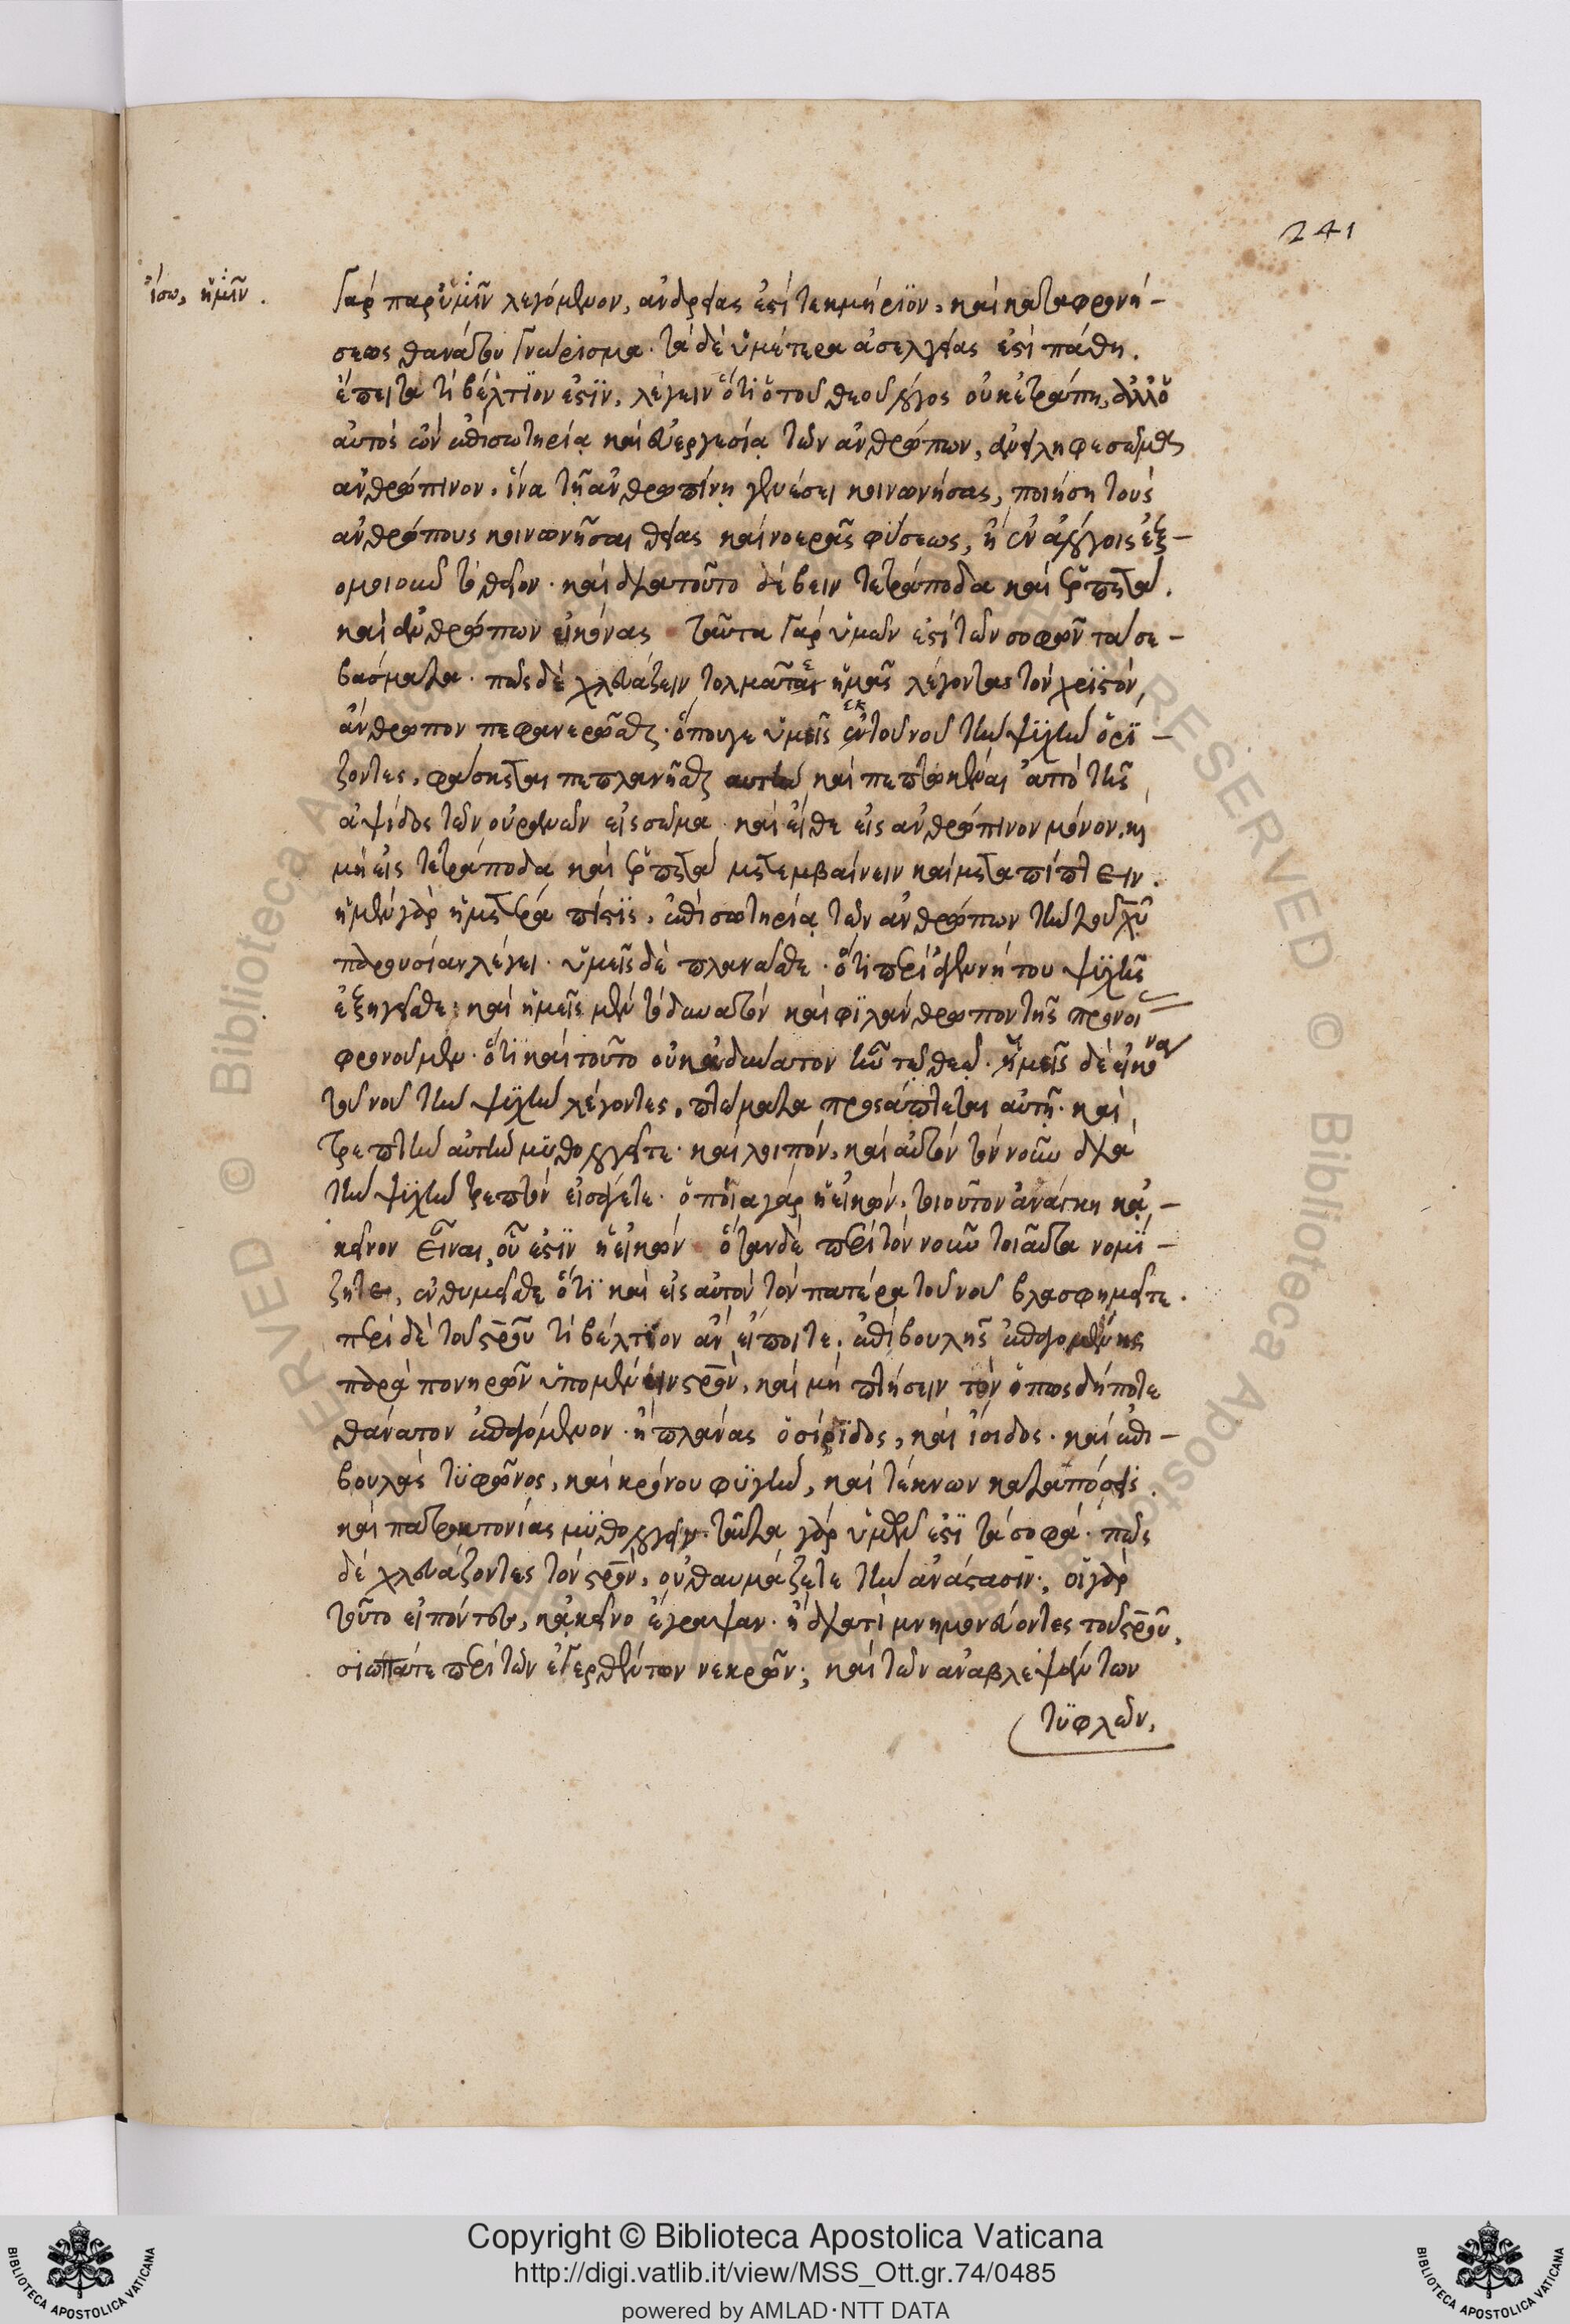 241
ἴσω, ἡμῖν.
γὰρ παρ' ὑμῖν λεγόμενον, ἀνδρείας ἐστὶ τεκμήριον, καὶ καταφρονή-
σεως θανάτου γνώρισμα. τὰ δὲ ὑμέτερα ἀσελγείας ἐστὶ πάθη.
ἔπειτα τί βέλτιον ἐστὶν, λέγειν ὅτι ὁ τοῦ θεοῦ λόγος οὐκ ἐτράπη, ἀλλ' ὁ
αὐτὸς ὢν ἐπὶ σωτηρία καὶ εὐεργεσία τῶν ἀνθρώπων, ἀνείληφε σῶμα
ἀνθρώπινον. ἵνα τῇ ἀνθρωπίνῃ γενέσει κοινωνήσας, ποιήση τοὺς
ἀνθρώπους κοινωνῆσαι θείας καὶ νοερᾶς φύσεως, ἢ ἐν ἀλόγοις ἐξ-
ομοιοῦν τὸ θεῖον. καὶ διὰ τοῦτο σέβειν τετράποδα καὶ ἑρπετὰ.
καὶ ἀνθρώπων εἰκόνας. ταῦτα γὰρ ὑμῶν ἐστὶ τῶν σοφῶν τὰ σε-
βάσματα. πῶς δὲ χλευάζειν τολμᾶτε ἡμᾶς λέγοντας τὸν χριστὸν,
ἄνθρωπον πεφανερῶσθαι. ὅπουγε ὑμεῖς ἐκ τοῦ νοῦ τὴν ψυχὴν ὁρί-
ζοντες, φάσκεται πεπλανῆσθαι αυτην καὶ πεπτωκέναι ἀπὸ τῆς
ἁψίδος τῶν οὐρανῶν εἰς σῶμα. καὶ εἴθε εἰς ἀνθρώπινον μόνον, καὶ
μὴ εἰς τετράποδα καὶ ἑρπετὰ μετεμβαίνειν καὶ μεταπίπτειν.
ἡ μὲν γὰρ ἡμετέρα πίστις, ἐπὶ σωτηρία τῶν ἀνθρώπων τὴν τοῦ χυ
παρουσίαν λέγει. ὑμεῖς δὲ πλανᾶσθε. ὅτι περὶ ἀγεννήτου ψυχῆς
ἐξηγεῖσθε: καὶ ἡμεῖς μὲν τὸ δυνατὸν καὶ φιλάνθρωπον τῆς προνοί
φρονοῦμεν. ὅτι καὶ τοῦτο οὐκ ἀδύνατον ἦν τῷ θεῷ. ὑμεῖς δὲ εἰκόνα
τοῦ νοῦ τὴν ψυχὴν λέγοντες, πτώματα προσάπτεται αὐτῇ. καὶ
τρεπτὴν αὐτὴν μυθολογεῖτε. καὶ λοιπὸν, καὶ αὐτὸν τὸν νοῦν διὰ
τὴν ψυχὴν τρεπτὸν εἰσάγετε. ὁποία γὰρ ἡ εἰκὼν, τοιοῦτον ἀνάγκη κἀ-
κεῖνον εἶναι, οὗ ἐστὶν ἡ εἰκών. ὅταν δὲ περὶ τὸν νοῦν τοιαῦτα νομί-
ζητε, ἐνθυμεῖσθε ὅτι καὶ εἰς αὐτὸν τὸν πατέρα τοῦ νοῦ βλασφημεῖτε.
περὶ δὲ τοῦ σροῦ τί βέλτιον ἂν εἴποιτε. ἐπιβουλῆς ἐπαγομένης
παρὰ πονηρῶν ὑπομένειν σρὸν, καὶ μὴ πτήσειν τὸν ὁπωσδήποτε
θάνατον ἐπαγόμενον. ἢ πλάνας ὀσίριδος, καὶ ἴσιδος. καὶ ἐπι-
βουλὰς τυφῶνος, καὶ κρόνου φυγὴν, καὶ τέκνων καταπόσεις.
καὶ πατροκτονίας μυθολογεῖν. ταῦτα γὰρ ὑμῶν ἐστὶ τὰ σοφά. πῶς
δὲ χλευάζοντες τὸν σρὸν, οὐ θαυμάζετε τὴν ἀνάστασιν; οἱ γὰρ
τοῦτο εἰπόντες, κἀκεῖνο ἔγραψαν. ἢ διὰ τί μνημονεύοντες τοῦ σροῦ,
σιωπᾶτε περὶ τῶν ἐγερθέντων νεκρῶν; καὶ τῶν ἀναβλεψάντων
τυφλῶν,
Copyright © Biblioteca Apostolica Vaticana
http://digi.vatlib.it/view/MSS_Ott.gr.74/0485
powered by AMLAD·NTT DATA